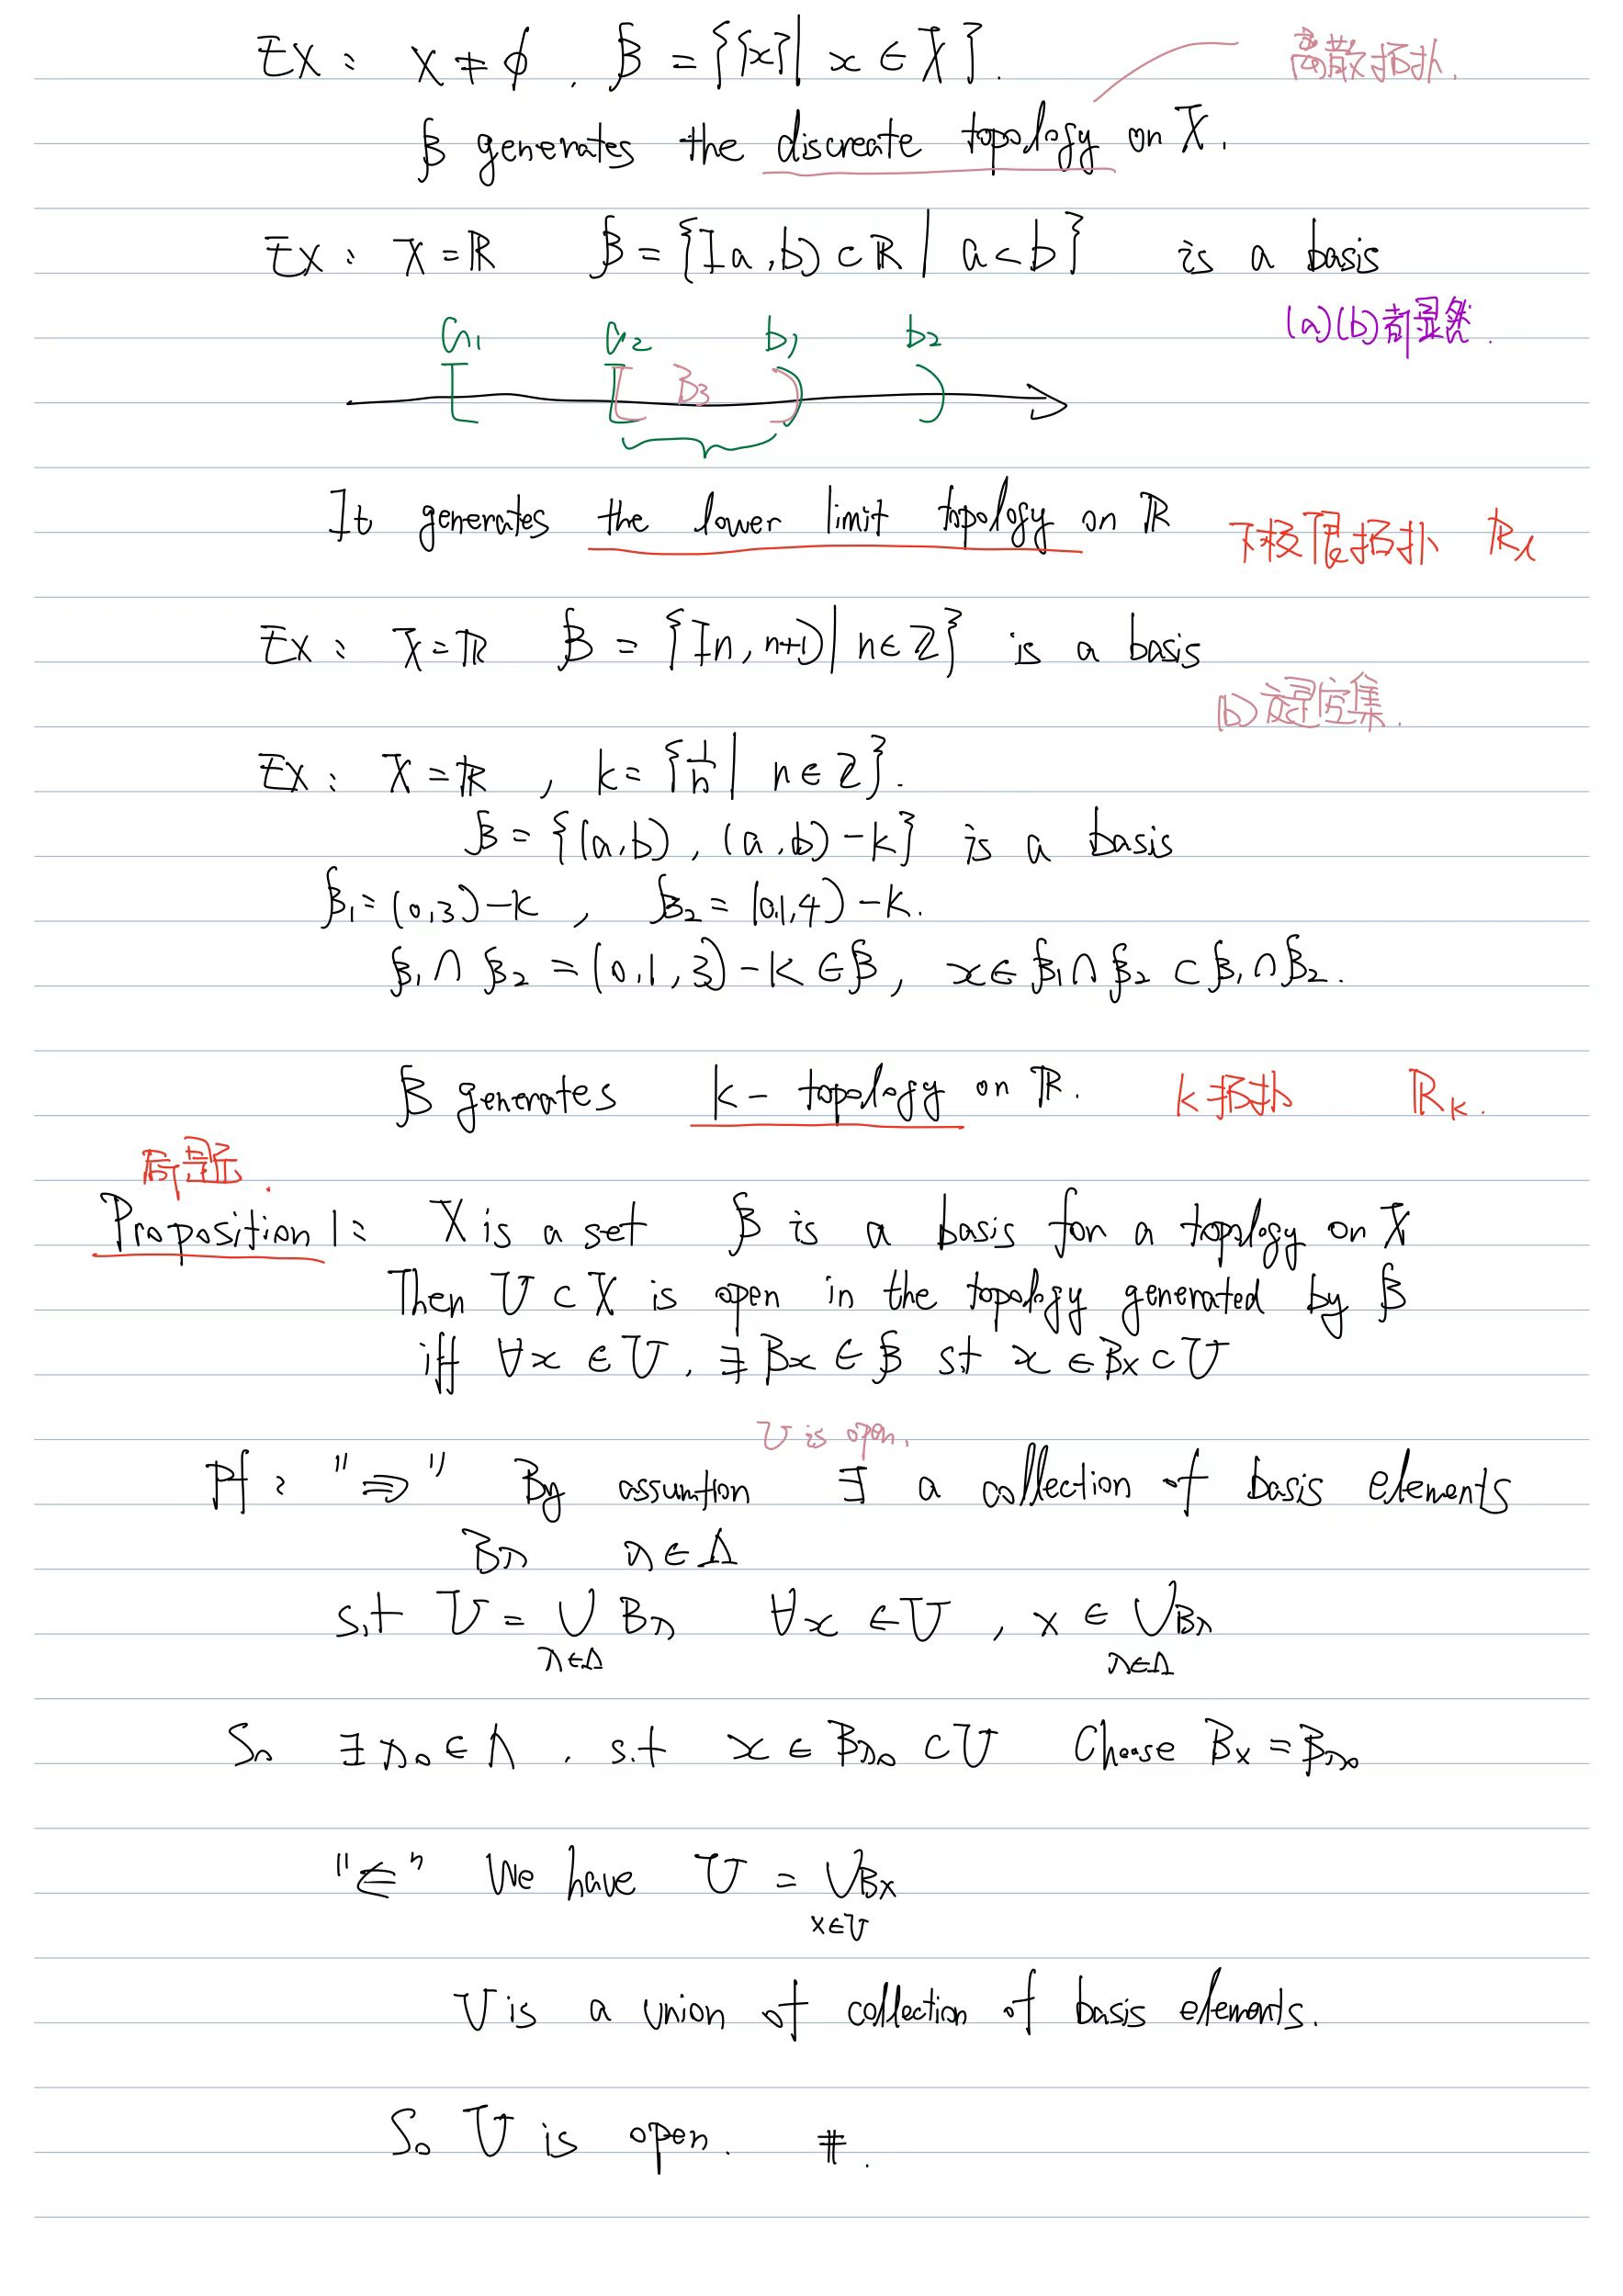 Ex: X ≠ ϕ . ℬ = {{x}| x ∈ X}. 离散拓扑.
ℬ generates the discreate topology on X.
Ex: X = ℝ ℬ = {[a,b) ⊂ ℝ | a < b} is a basis
(a)(b)都显然.
a₁ a₂ b₁ b₂
B₃
It generates the lower limit topology on ℝ 下极限拓扑 ℝₗ
Ex: X = ℝ ℬ = {[n, n+1) | n ∈ ℤ} is a basis
(b) 空集.
Ex: X = ℝ , k = {1/n | n ∈ ℤ}.
ℬ = {(a,b), (a,b) - k} is a basis
ℬ₁ = (0,3) - k , ℬ₂ = (0,1,4) - k.
ℬ₁ ∩ ℬ₂ = (0,1,3) - k ∈ ℬ, x ∈ ℬ₁ ∩ ℬ₂ ⊂ ℬ₁ ∩ ℬ₂.
ℬ generates k - topology on ℝ. k 拓扑 ℝₖ.
命题.
Proposition 1: X is a set ℬ is a basis for a topology on X
Then U ⊂ X is open in the topology generated by ℬ
iff ∀x ∈ U, ∃ Bx ∈ ℬ s.t x ∈ Bx ⊂ U
U is open.
Pf: "⇒" By assumtion ∃ a collection of basis elements
Bλ λ ∈ Λ
s.t U = ∪ Bλ ∀x ∈ U , x ∈ ∪Bλ
λ∈Λ λ∈Λ
So ∃ λ₀ ∈ Λ . s.t x ∈ Bλ₀ ⊂ U Choose Bx = Bλ₀
"⇐" We have U = ∪Bx
x∈U
U is a union of collection of basis elements.
So U is open. #.